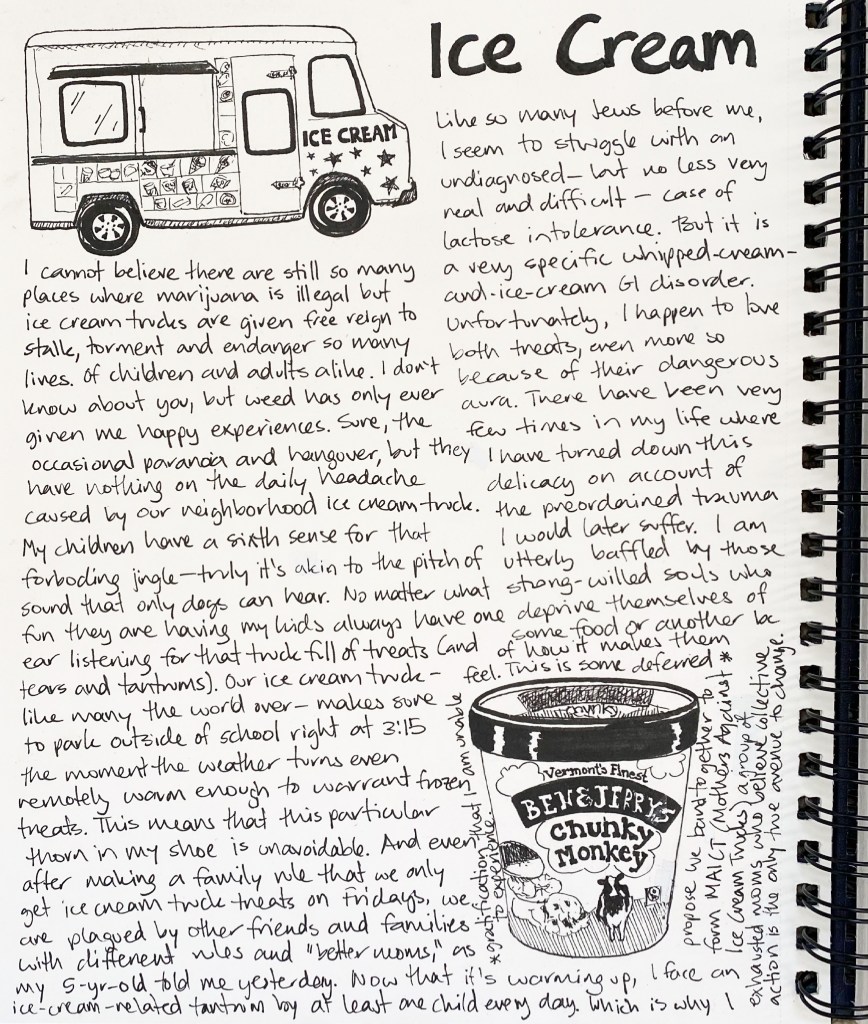 Ice Cream
ICE CREAM
Like so many Jews before me,
I seem to struggle with an
undiagnosed — but no less very
real and difficult — case of
lactose intolerance. But it is
a very specific whipped-cream-
and-ice-cream GI disorder.
Unfortunately, I happen to love
both treats, even more so
because of their dangerous
aura. There have been very
few times in my life where
I have turned down this
delicacy on account of
the preordained trauma
I would later suffer. I am
utterly baffled by those
strong-willed souls who
deprive themselves of
some food or another bc
of how it makes them
feel. This is some deferred *
* gratification that I am unable
to experience.
I cannot believe there are still so many
places where marijuana is illegal but
ice cream trucks are given free reign to
stalk, torment and endanger so many
lives. Of children and adults alike. I don't
know about you, but weed has only ever
given me happy experiences. Sure, the
occasional paranoia and hangover, but they
have nothing on the daily headache
caused by our neighborhood ice cream truck.
My children have a sixth sense for that
forboding jingle — truly it's akin to the pitch of
sound that only dogs can hear. No matter what
fun they are having my kids always have one
ear listening for that truck full of treats (and
tears and tantrums). Our ice cream truck —
like many the world over — makes sure
to park outside of school right at 3:15
the moment the weather turns even
remotely warm enough to warrant frozen
treats. This means that this particular
thorn in my shoe is unavoidable. And even
after making a family rule that we only
get ice cream truck treats on Fridays, we
are plagued by other friends and families
with different rules and "better moms," as
my 5-yr-old told me yesterday. Now that it's warming up, I face an
ice-cream-related tantrum by at least one child every day. Which is why I
propose we band together to
form MAICT (Mothers Against
Ice Cream Trucks) a group of
exhausted moms who believe collective
action is the only true avenue to change.
Chunky
Vermont's Finest
BEN & JERRY'S
Chunky
Monkey